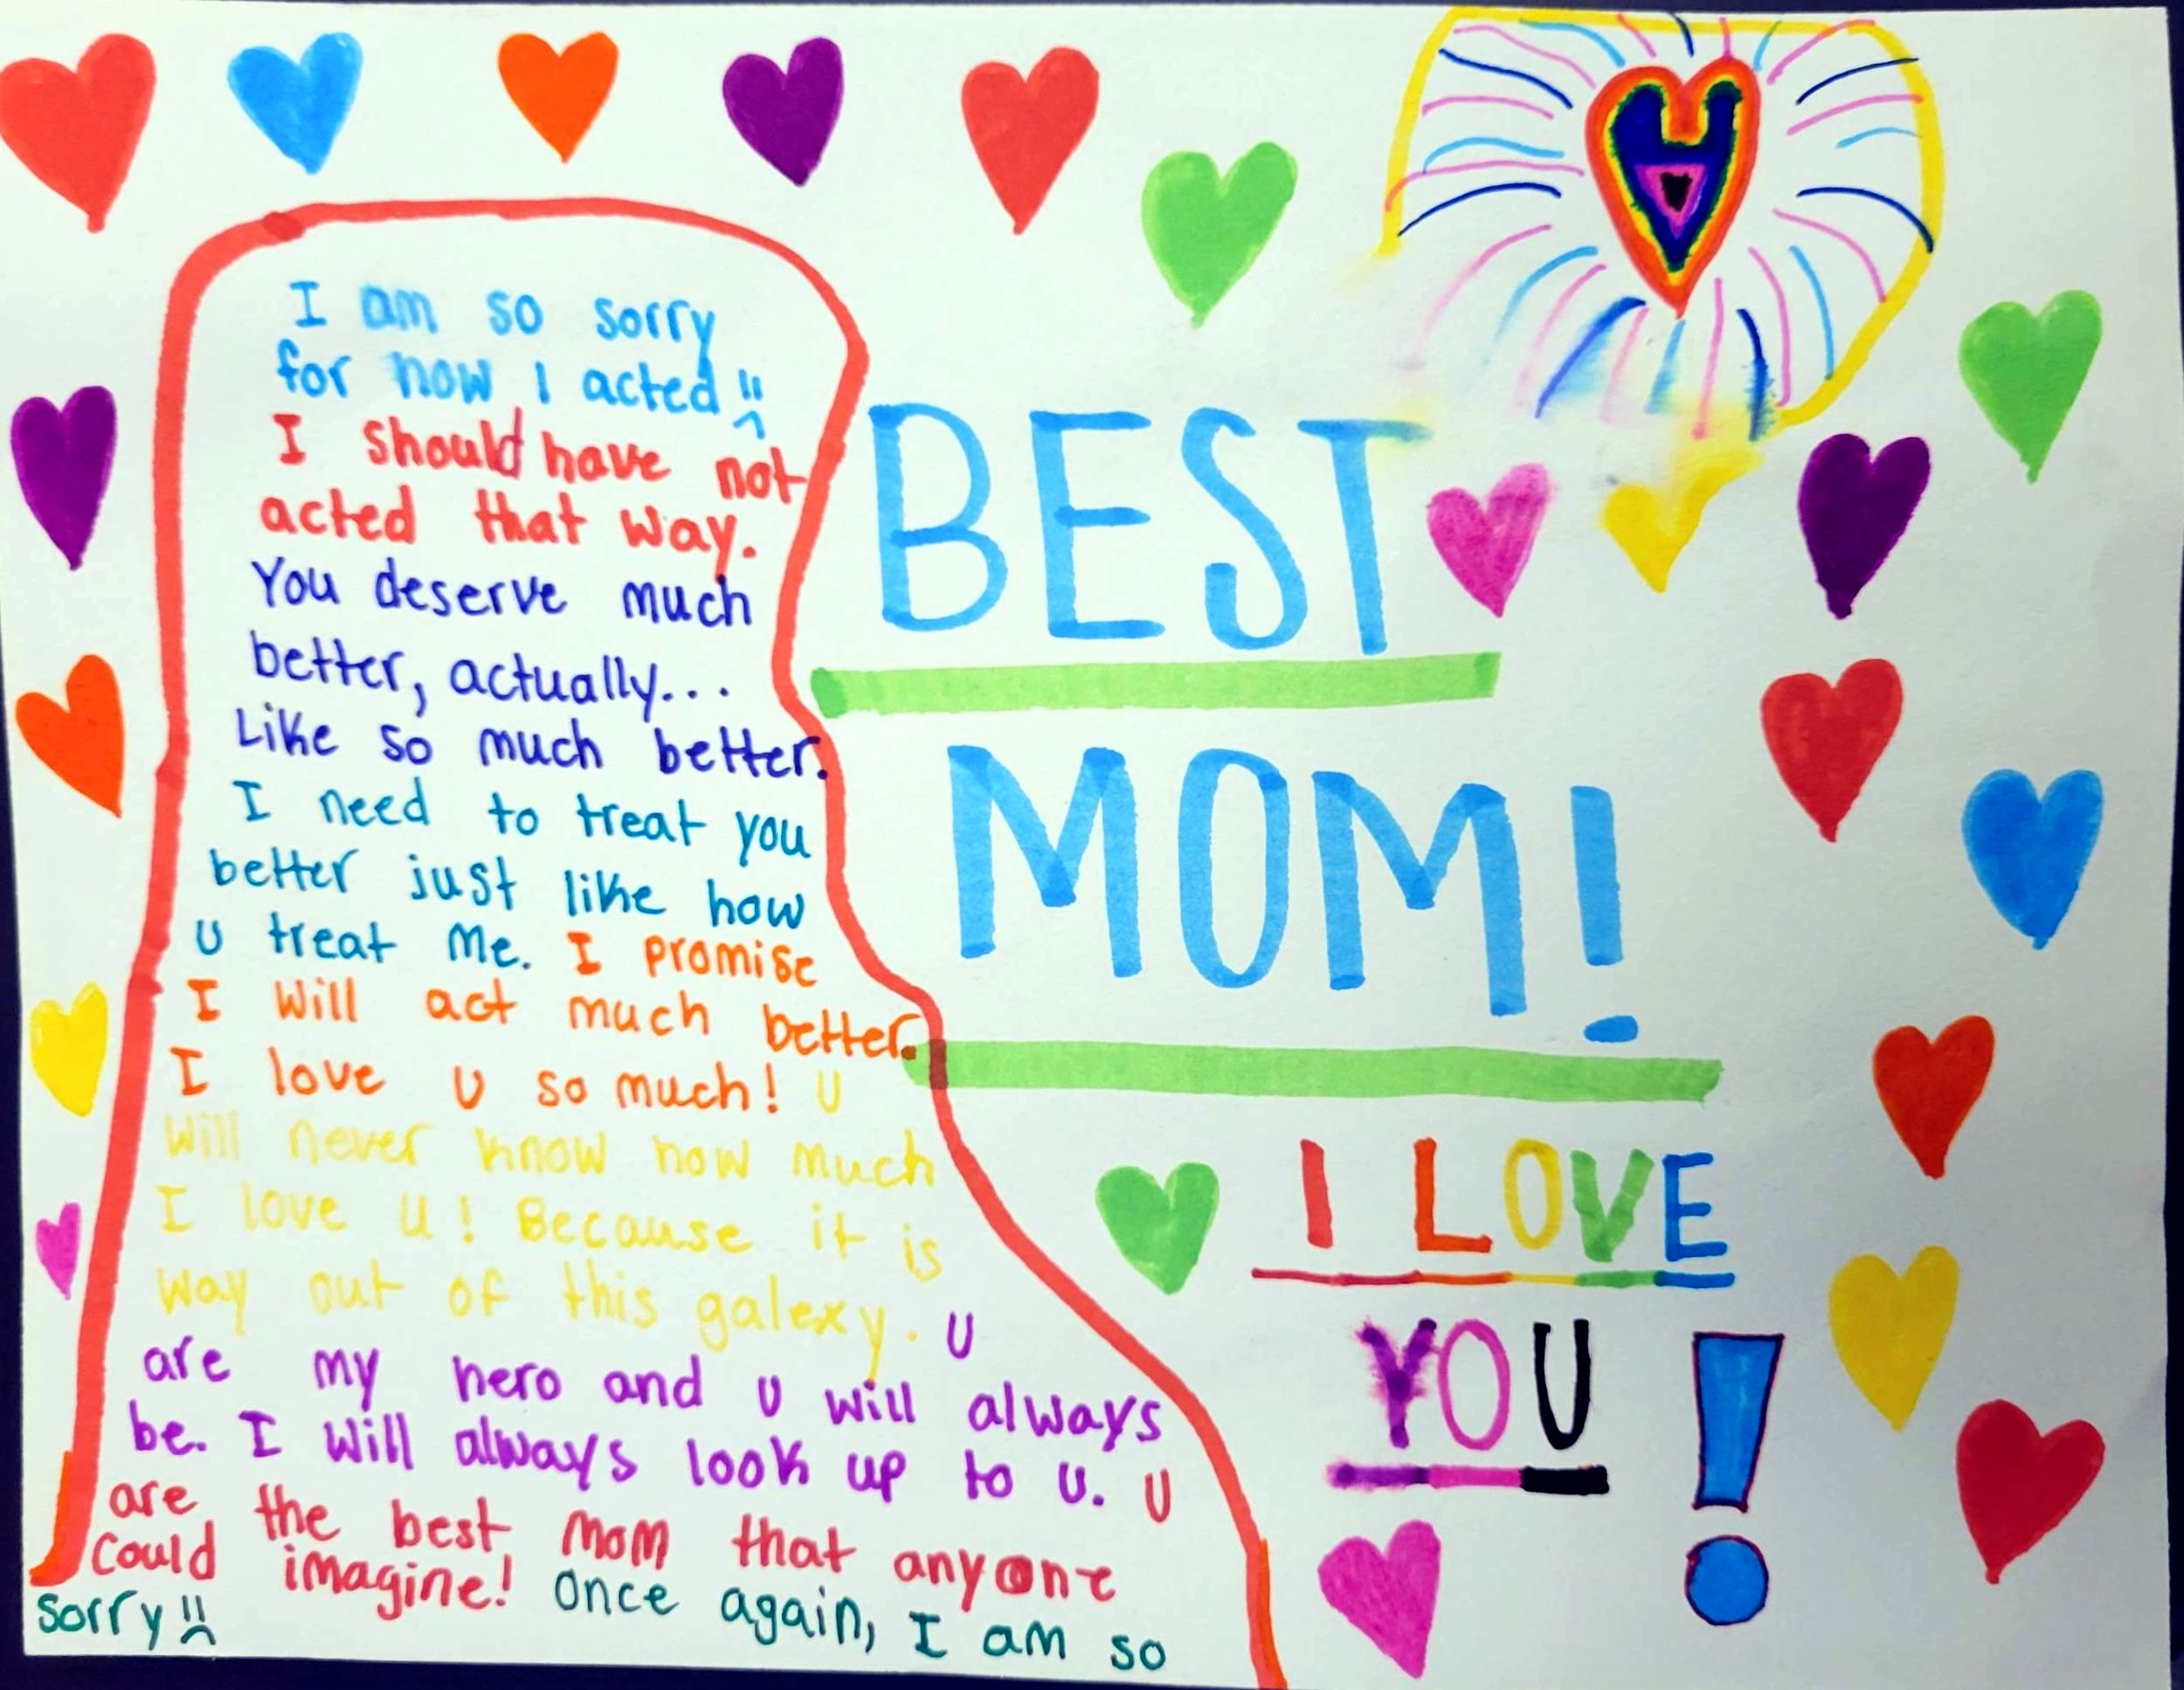 I am so sorry
for how I acted
I should have not
acted that way.
You deserve much
better, actually...
Like so much better.
I need to treat you
better just like how
U treat me. I promise
I will act much better.
I love U so much! U
will never know how much
I love U! Because it is
way out of this galexy. U
are my hero and U will always
be. I will always look up to U. U
are the best mom that anyone
could imagine! Once again, I am so
sorry
BEST
MOM!
I LOVE
YOU!